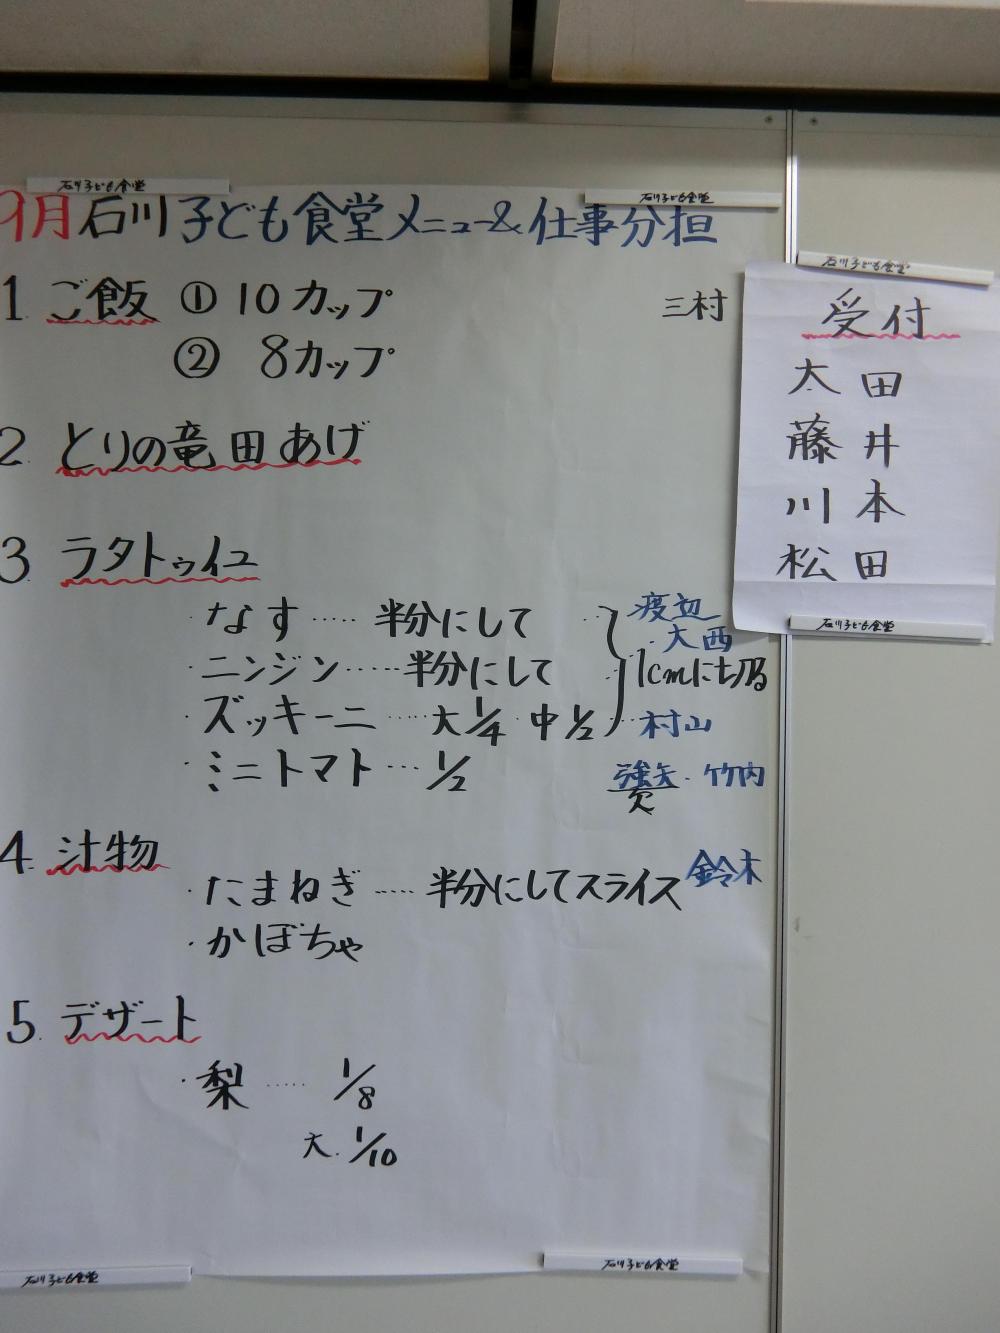 石川子ども食堂
石川子ども食堂
9月石川子ども食堂メニュー&仕事分担
1 ご飯 ① 10カップ 三村
② 8カップ
2. とりの竜田あげ
3. ラタトゥイユ
・なす…… 半分にして 渡辺
・大西
・ニンジン…… 半分にして 1cmに切る
・ズッキーニ…… 大1/4 中1/2 村山
・ミニトマト… 1/2 強矢・竹内
欠
4. 汁物
・たまねぎ…… 半分にしてスライス 鈴木
・かぼちゃ
5. デザート
・梨…… 1/8
大. 1/10
石川子ども食堂
石川子ども食堂
石川子ども食堂
受付
太田
藤井
川本
松田
石川子ども食堂